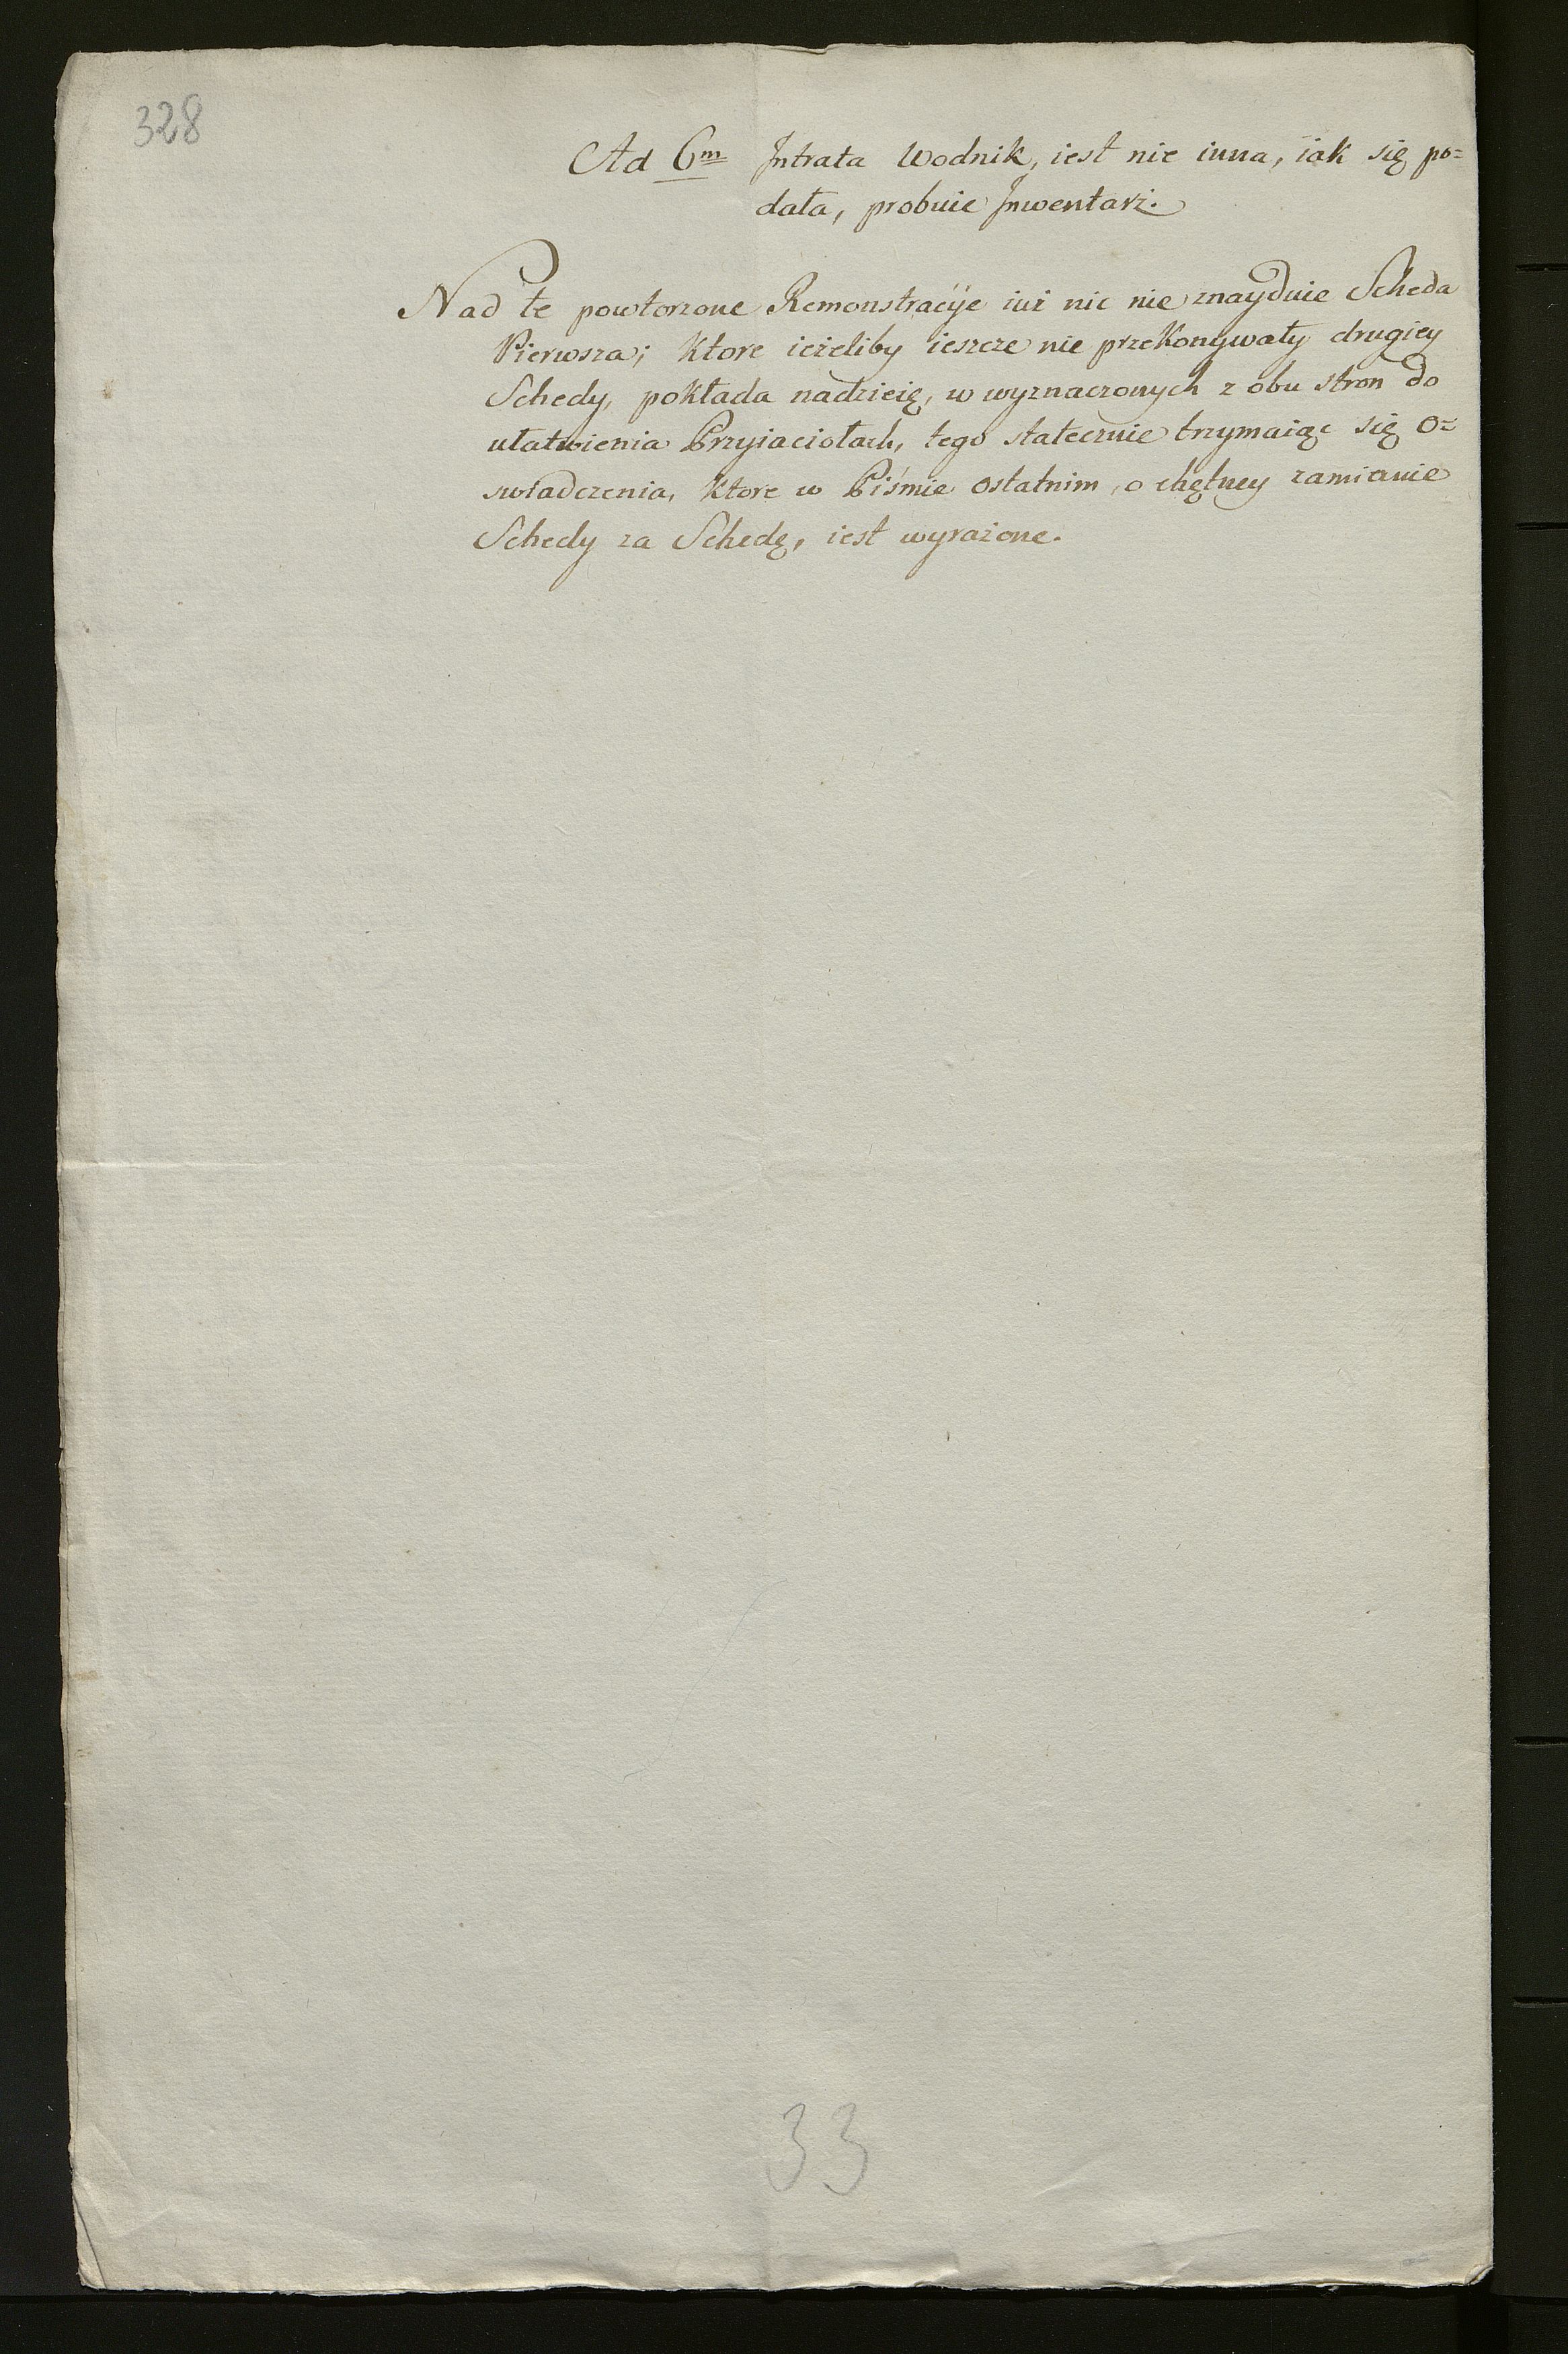 328
Ad 6m Jntrata Wodnik, iest nie inna, iak się po=
data, probuie Jnwentarż.
Nad te powtorzone Remonstracÿe iuż nic nie znayduie Scheda
Pierwsza; ktore ieżeliby ieszcze nie przekonywały drugiey
Schedy, pokłada nadzieię, w wyznaczonych z obu stron do
ułatwienia Przyiaciołach, tego statecznie trzymaiąc się o=
swiadczenia, ktore w Piśmie ostatnim, o chętney zamianie
Schedy za Schedę, iest wyrażone.
33